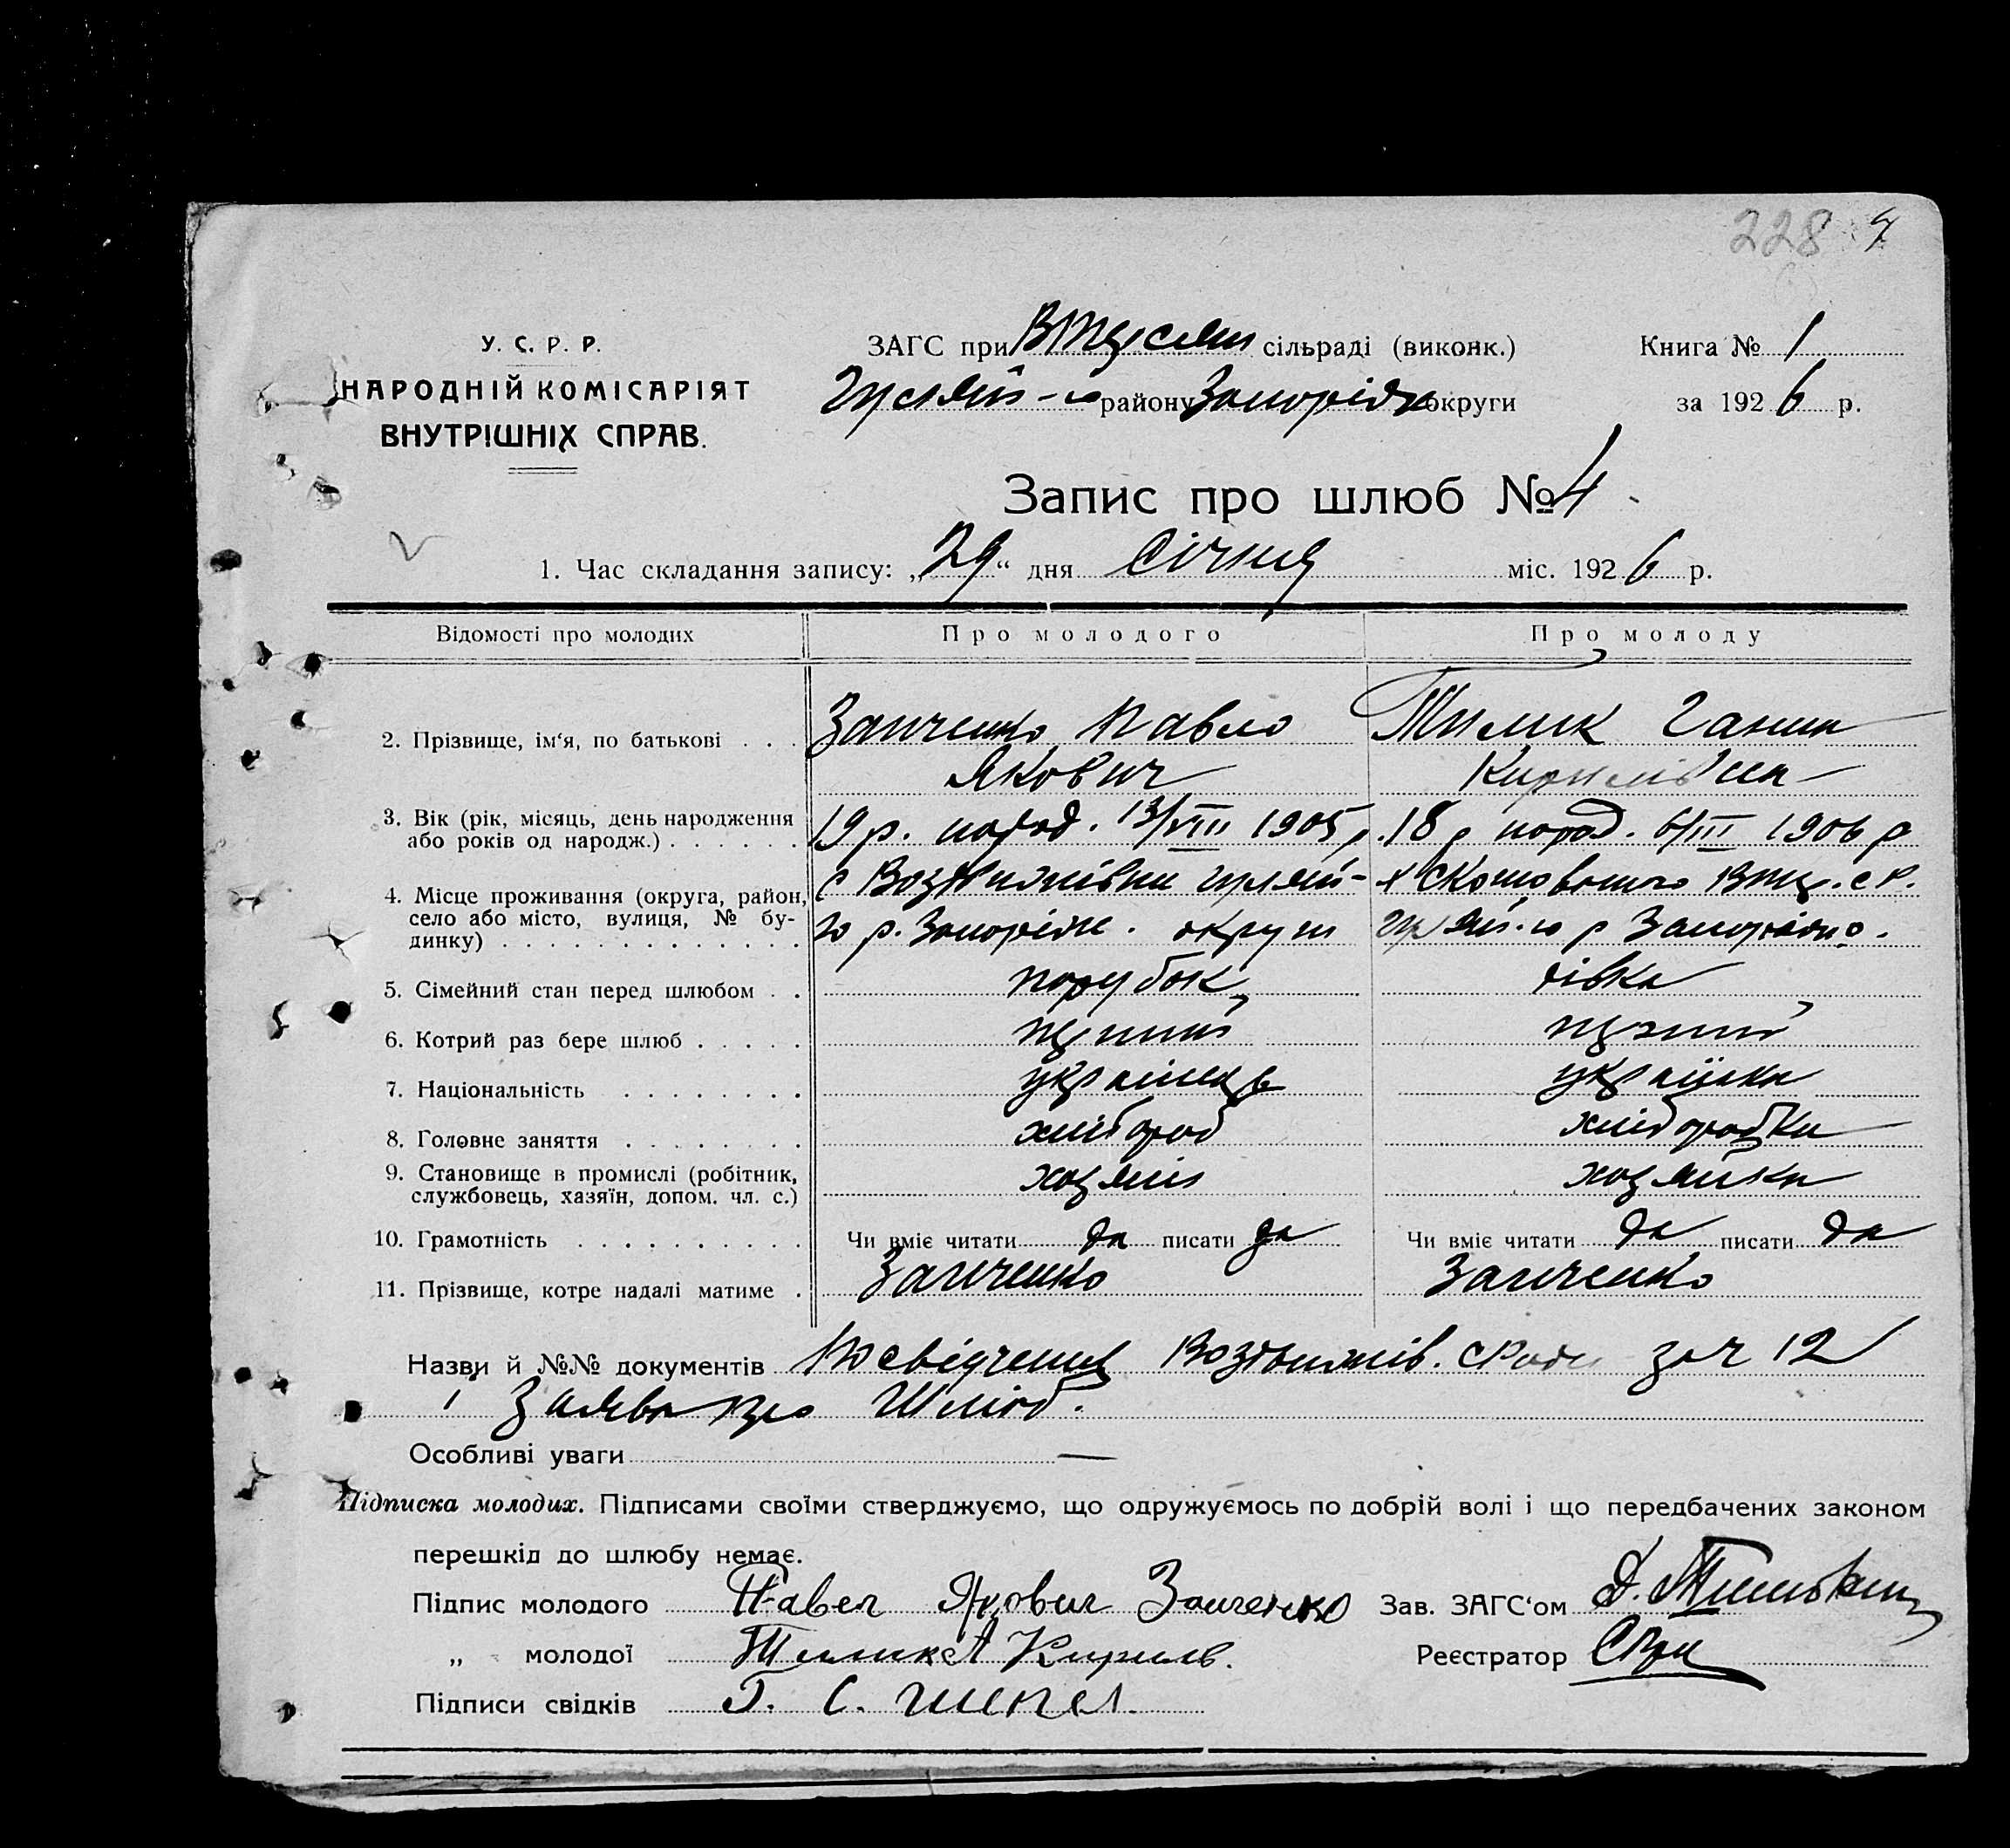 228
У. С. Р. Р.
НАРОДНІЙ КОМІСАРІЯТ
ВНУТРІШНІХ СПРАВ.
ЗАГС при сільраді (виконк.)
Книга № 1
району Запоріж округи
за 1926 р.
Запис про шлюб № 4
1. Час складання запису: „29“ дня Січня міс. 1926 р.
Відомості про молодих
Про молодого
Про молоду
2. Прізвище, ім‘я, по батькові . . .
Заиченко Павло
Якович
Тилик Ганна
Кирилівна
3. Вік (рік, місяць, день народження
або років од народж.) . . . . . .
19 р. народ. 13/VIII 1905 р.
18 р народ. 6/III 1906 р
4. Місце проживання (округа, район,
село або місто, вулиця, № бу-
динку) . . . . . . . . . . . . . .
с Воздвижівки
го р. Запоріж. округи
р Запоріж о.
5. Сімейний стан перед шлюбом . .
парубок
дівка
6. Котрий раз бере шлюб . . . . .
перший
перший
7. Національність . . . . . . . .
українець
українка
8. Головне заняття . . . . . . . .
хлібороб
хліборобка
9. Становище в промислі (робітник,
службовець, хазяїн, допом. чл. с.)
хозяїн
хозяйка
10. Грамотність . . . . . . . . . .
Чи вміє читати да писати да
Чи вміє читати да писати да
11. Прізвище, котре надалі матиме .
Заиченко
Заиченко
Назви й №№ документів Посвідчення Воздвижів. с Ради за ч 12
і Заява про шлюб.
Особливі уваги —
Підписка молодих. Підписами своїми стверджуємо, що одружуємось по добрій волі і що передбачених законом
перешкід до шлюбу немає.
Підпис молодого Павел Якович Заиченко
Зав. ЗАГС‘ом
„ молодої Тилик А Кирилв.
Реєстратор
Підписи свідків